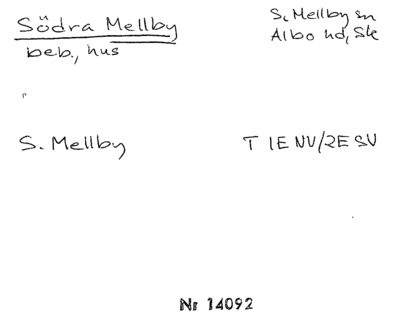 Södra Mellby
S. Mellby sn
beb., hus
Albo hd, Sk
S. Mellby
T 1E NV/2E SV
Nr 14092